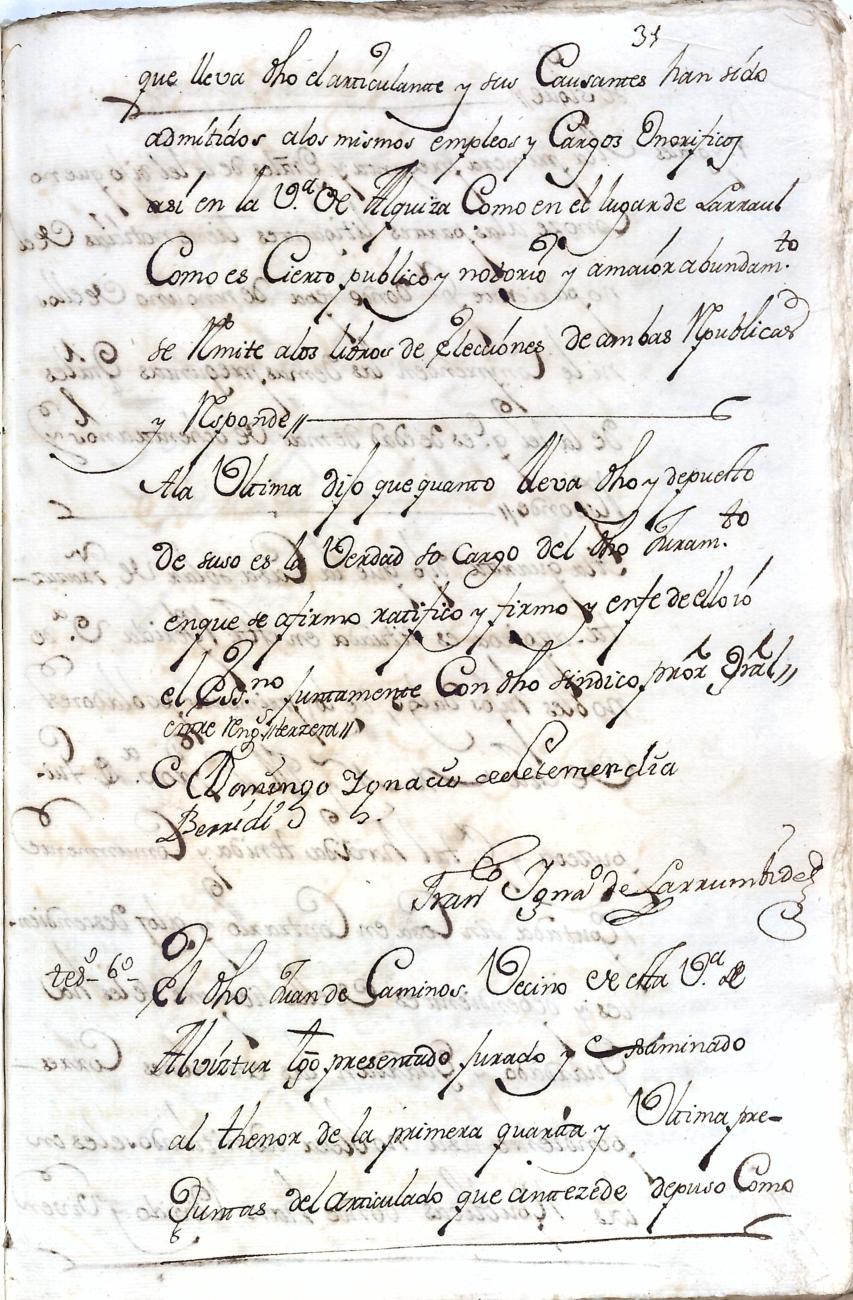 31
que lleva dho el articulante y sus Causantes han sido
admitidos alos mismos empleos y Cargos Onorificos
asi en la V.ª de Alquiza Como en el lugar de Larraul
Como es Cierto publico y notorio y a maior abundam.to
se Rmite alos libros de Elecciones de ambas Rpublicas
y Rsponde//
Ala Ultima dijo que quanto lleva dho y depuesto
de suso es la Verdad so cargo del dho Juram.to
en que se afirmo ratifico y firmo y en fe de ello io
el Ess.no juntamente Con dho sindico pror Gral//
entre Rng.s//Herrera//
Domingo Ignacio de
Berridi
Fran.co Igna.o de Larrumbide
tes.o 6.o
El dho Juan de Caminos Vecino de esta V.ª de
Alviztur tgo presentado jurado y examinado
al thenor de la primera quarta y Ultima pre-
guntas del articulado que antezede depuso Como